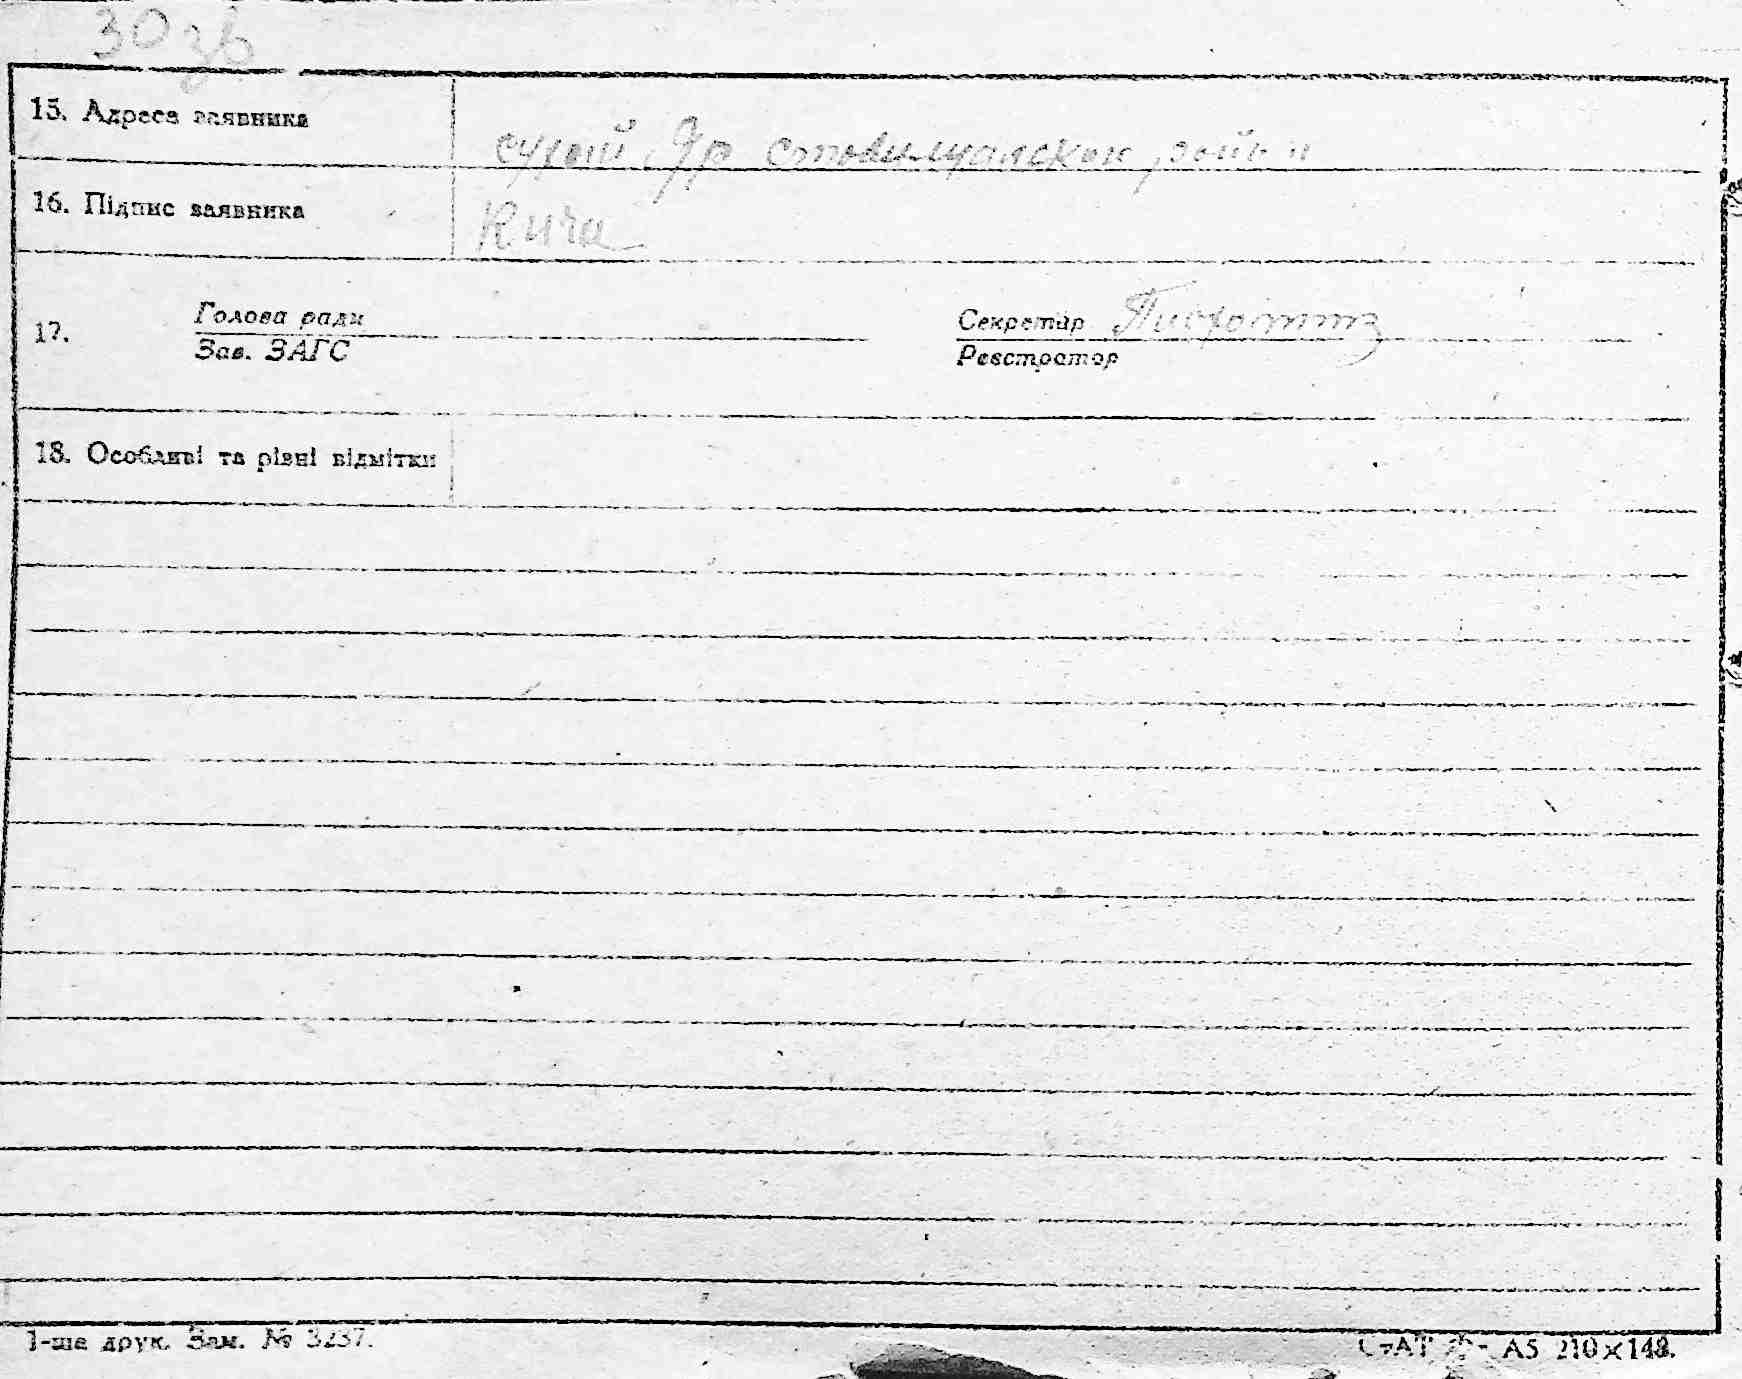 30 зв
15. Адреса заявника
сухой Яр
16. Підпис заявника
Кича
17.
Голова ради
Зав. ЗАГС
Секретар
Реєстратор
18. Особливі та різні відмітки
1-ша друк. Зам. № 3237.
А5 210×148.